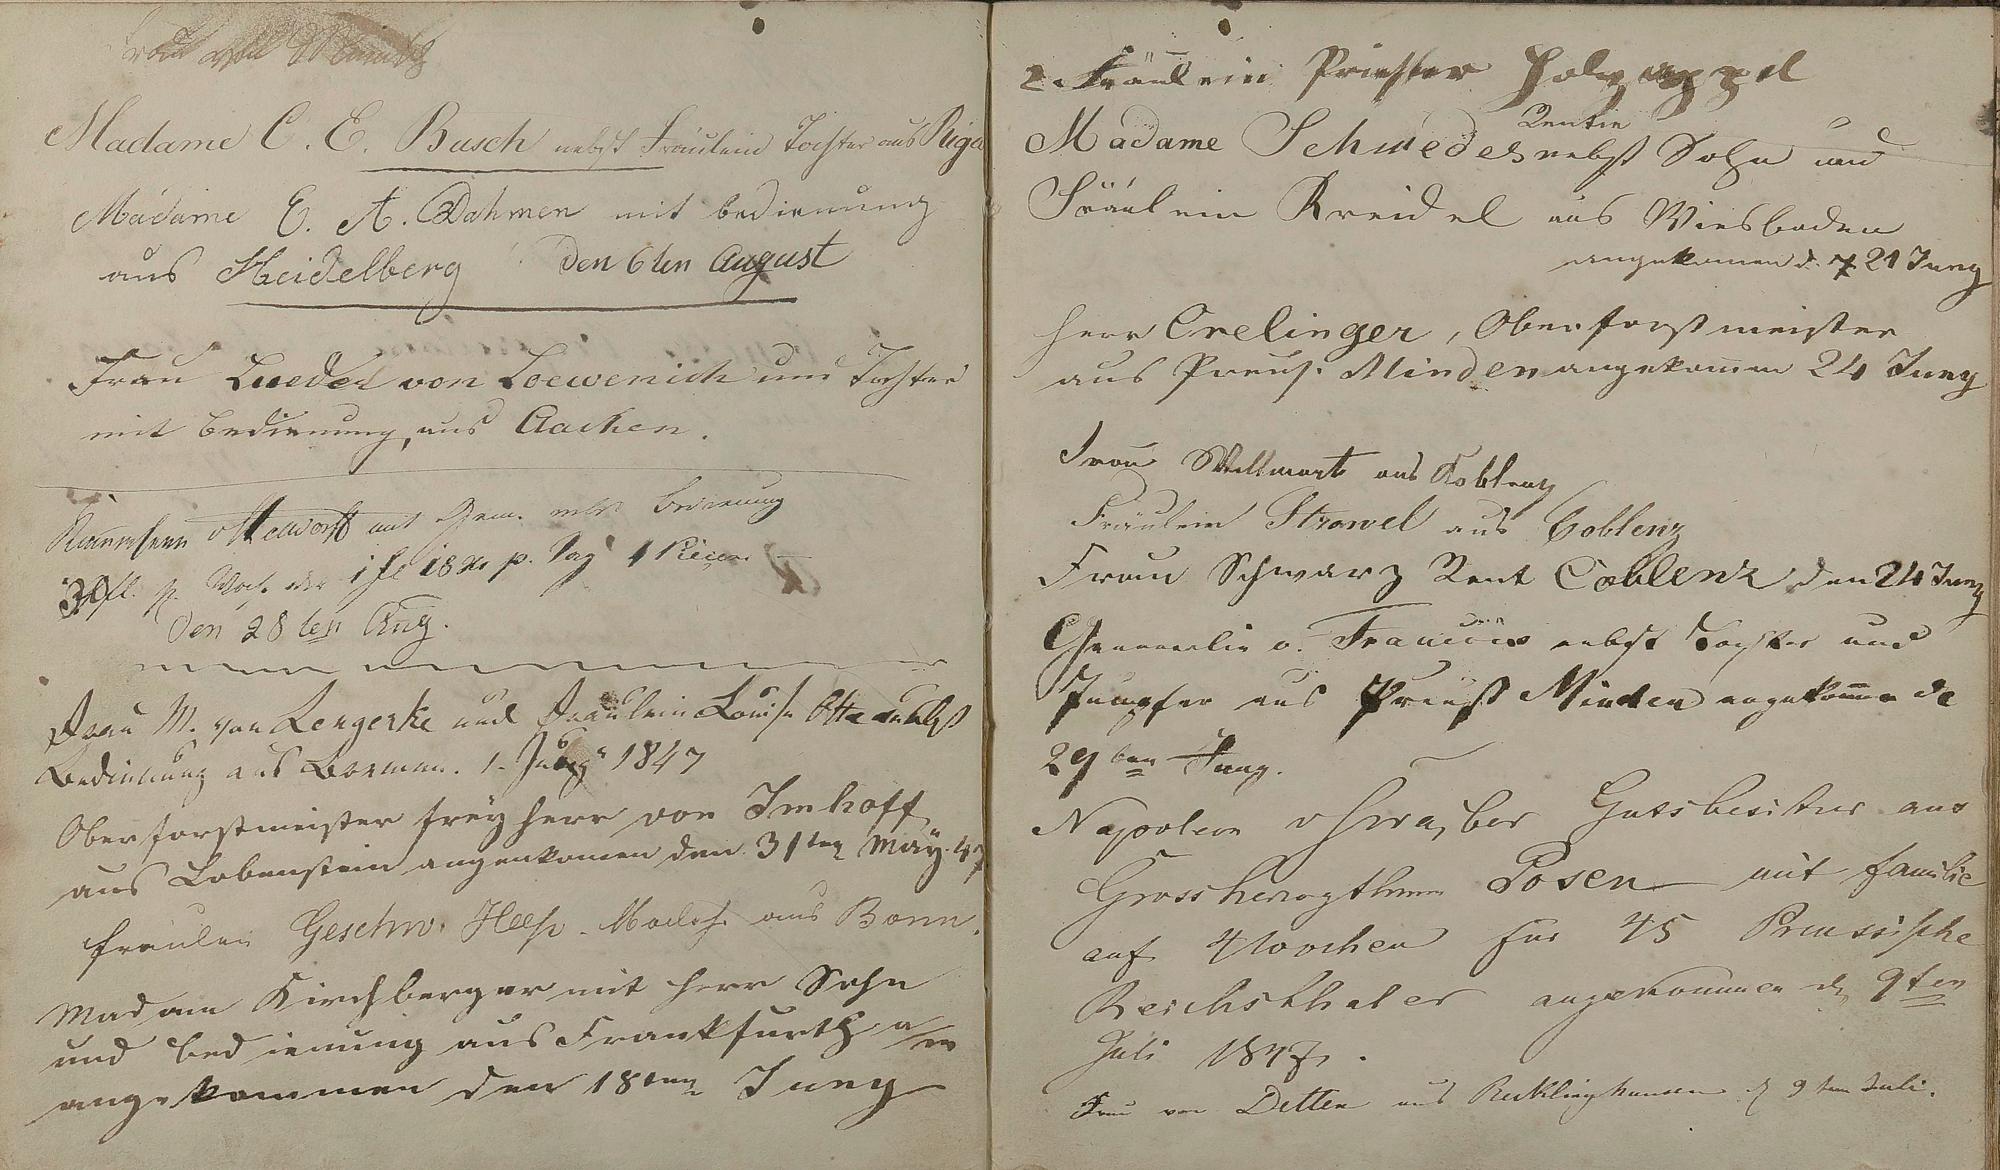 Frau von
Madame C. E. Busch nebst Fräulein Tochter aus Riga
Madame E. A. Dahmen mit bedienung
aus Heidelberg den 6ten August
Frau Lueder von Loewenich und Tochter
mit bedienung, aus Aachen.
mit Gem. nebst bedienung
fl. p. Woch. 1 fl 18 xr p. Tag 1
den 28ten Aug.
Frau M. von Lengerke und Fräulein Louise nebst
Bedienung aus Bremen. 1. 1847
Oberforstmeister freyherr von Imhoff
aus Lobenstein angekomen den 31ten May. 47
fraulen Geschw. aus Bonn.
Madam Kirchberger mit herr Sohn
und bedienung aus Frankfurth a/m
angekommen den 18ten Juny
2 Fräulein Priester Holzappel
Rentie
Madame Schwedes nebst Sohn und
Fräulein Kreidel aus Wiesbaden
angekomen d. 21 Juny
herr Crelinger, Oberforstmeister
aus Preus. Minden angekomen 24 Juny
Frau aus Koblenz
Fräulein Stravel aus Coblenz
Frau Schwarz Rent Coblenz den 24 Juny
Generalin v. Francois nebst Tochter und
Jungfer aus Preuß Minden angekommen de
29ten Juny.
Napoleon Gutsbesitzer aus
Grossherzogthum Posen mit familie
auf 4 Wochen für 45 Preussische
Reichsthaler angekommen d. 9ten
Juli 1847.
Frau von Detten aus Recklinghausen d 9ten Juli.